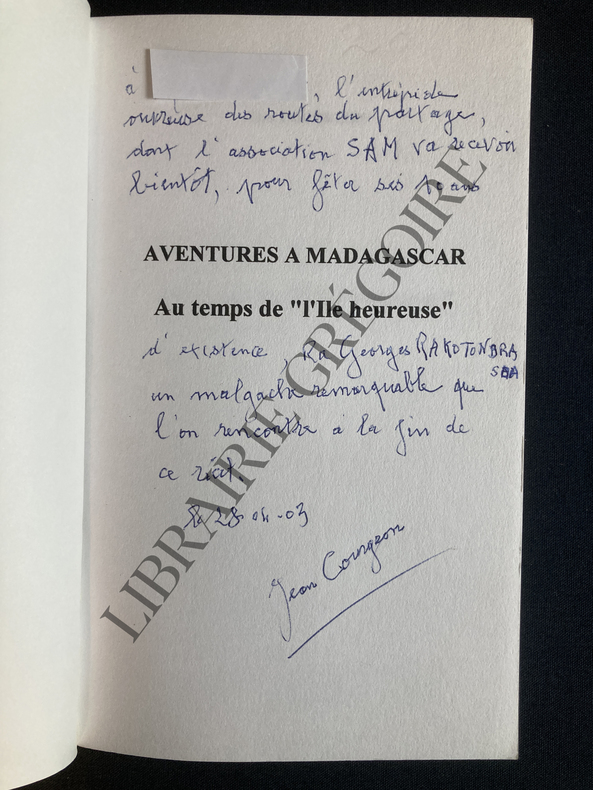 à , l'intrépide
ouvreuse des routes du partage,
dont l'association SAM va recevoir
bientôt, pour fêter ses 10 ans
AVENTURES A MADAGASCAR
Au temps de "l'Ile heureuse"
d'existence, Georges RAKOTONDRA
un malgache remarquable que
l'on rencontre à la fin de
ce récit.
le 28-04-03
Jean Courgeon
LIBRAIRIE GRÉGOIRE